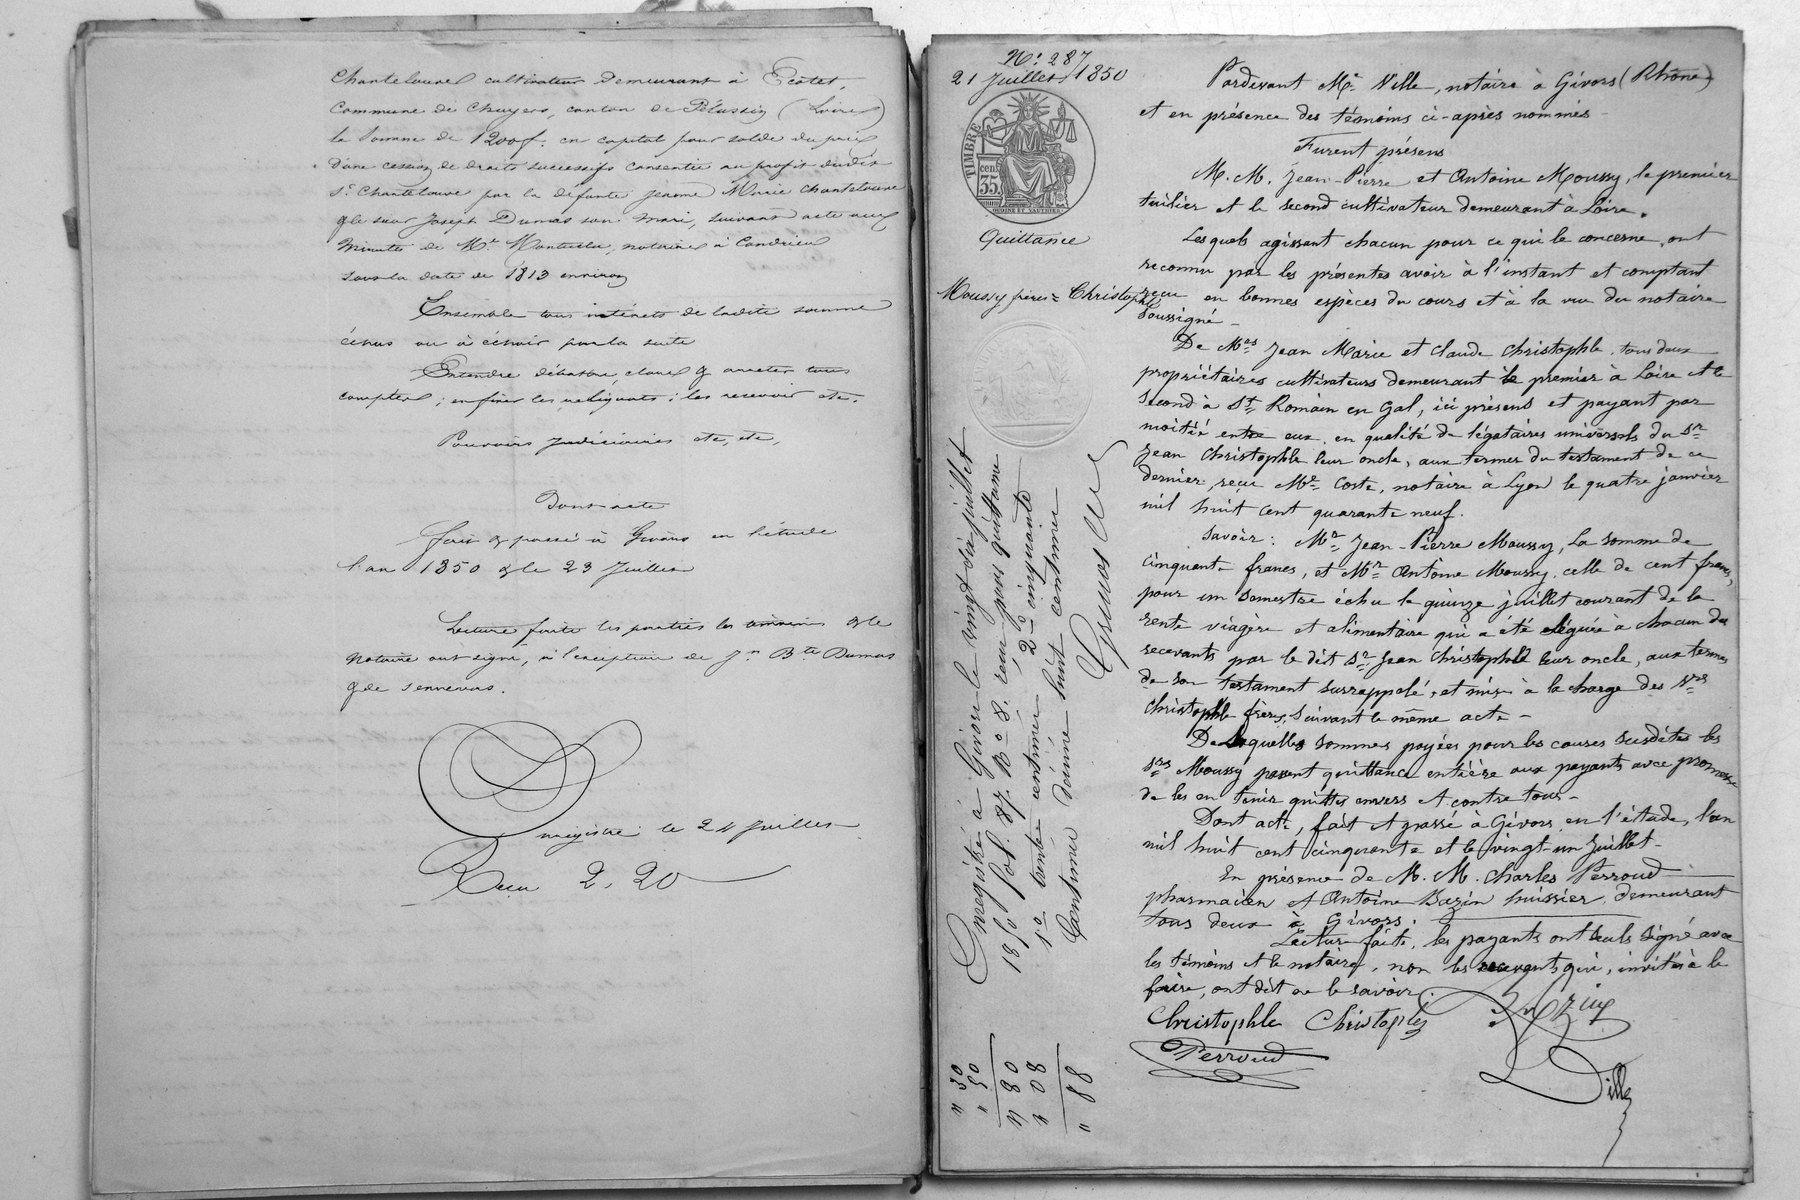 Chantelouve cultivateur demeurant à Ecotet,
Commune de Chuyers, canton de Pélussin (Loire)
la somme de 1200f. en capital pour solde du prix
d'une cession de droits successifs consentie au profit dudit
Sr. Chantelouve par la défunte Jeanne Marie Chantelouve
& le sieur Joseph Dumas son mari, suivant acte aux
minutes de Me. notaire à Condrieu
sous la date de 1813 environ
Ensemble tous intérêts de ladite somme
échus ou à échoir par la suite
Entendre débattre, clore & arrêter tous
comptes ; en fixer les reliquats ; les recevoir etc.
Pouvoirs judiciaires etc, etc,
Dont acte
fait & passé à Givors en l'étude
l'an 1850 & le 23 Juillet
Lecture faite les parties les témoins & le
notaire ont signé, à l'exception de Jn. Bte. Dumas
& de
Enregistré le 24 Juillet
Reçu 2,20
No. 287
21 Juillet 1850
TIMBRE
cen.
35
OUDINE ET VAUTHIER
Quittance
Moussy frères = Christophle
Enregistré à Givors le vingt dix juillet
1850 fol. 87. Ro. c 8. reçu pour quittance
1o. trente centimes, 2o. cinquante
Centimes décime huit centimes
" 30
" 50
" 80
" 08
" 88
Pardevant Me. Ville, notaire à Givors (Rhône)
et en présence des témoins ci-après nommés
Furent présens
M.M. Jean-Pierre et Antoine Moussy, le premier
tuilier et le second cultivateur demeurant à Loire.
Lesquels agissant chacun pour ce qui le concerne, ont
reconnu par les présentes avoir à l'instant et comptant
reçu en bonnes espèces du cours et à la vue du notaire
soussigné —
De Mrs. Jean Marie et Claude Christophle, tous deux
propriétaires cultivateurs demeurant le premier à Loire et le
second à St. Romain en Gal, ici présens et payant par
moitié entre eux, en qualité de légataires universels du Sr.
Jean Christophle leur oncle, aux termes du testament de ce
dernier, reçu Me. Coste, notaire à Lyon le quatre janvier
mil huit cent quarante neuf.
Savoir : Mr. Jean-Pierre Moussy, la somme de
cinquante francs, et Mr. Antoine Moussy, celle de cent francs,
pour un semestre échu le quinze juillet courant de la
rente viagère et alimentaire qui a été léguée à chacun des
recevants par le dit Sr. Jean Christophle leur oncle, aux termes
de son testament surrappelé, et mise à la charge des Srs.
Christophle frères, suivant le même acte —
Desquelles sommes payées pour les causes susdites les
Srs. Moussy passent quittance entière aux payants avec promesse
de les en tenir quittes envers et contre tous —
Dont acte, fait et passé à Givors en l'étude, l'an
mil huit cent cinquante et le vingt-un Juillet —
En présence de M.M. Charles Perroud
pharmacien et Antoine Bazin huissier, demeurant
tous deux à Givors.
Lecture faite, les payants ont seuls signé avec
les témoins et le notaire, non les recevants qui, invités à le
faire, ont dit ne le savoir.
Christophle Christophle Bazin
Perroud
Ville